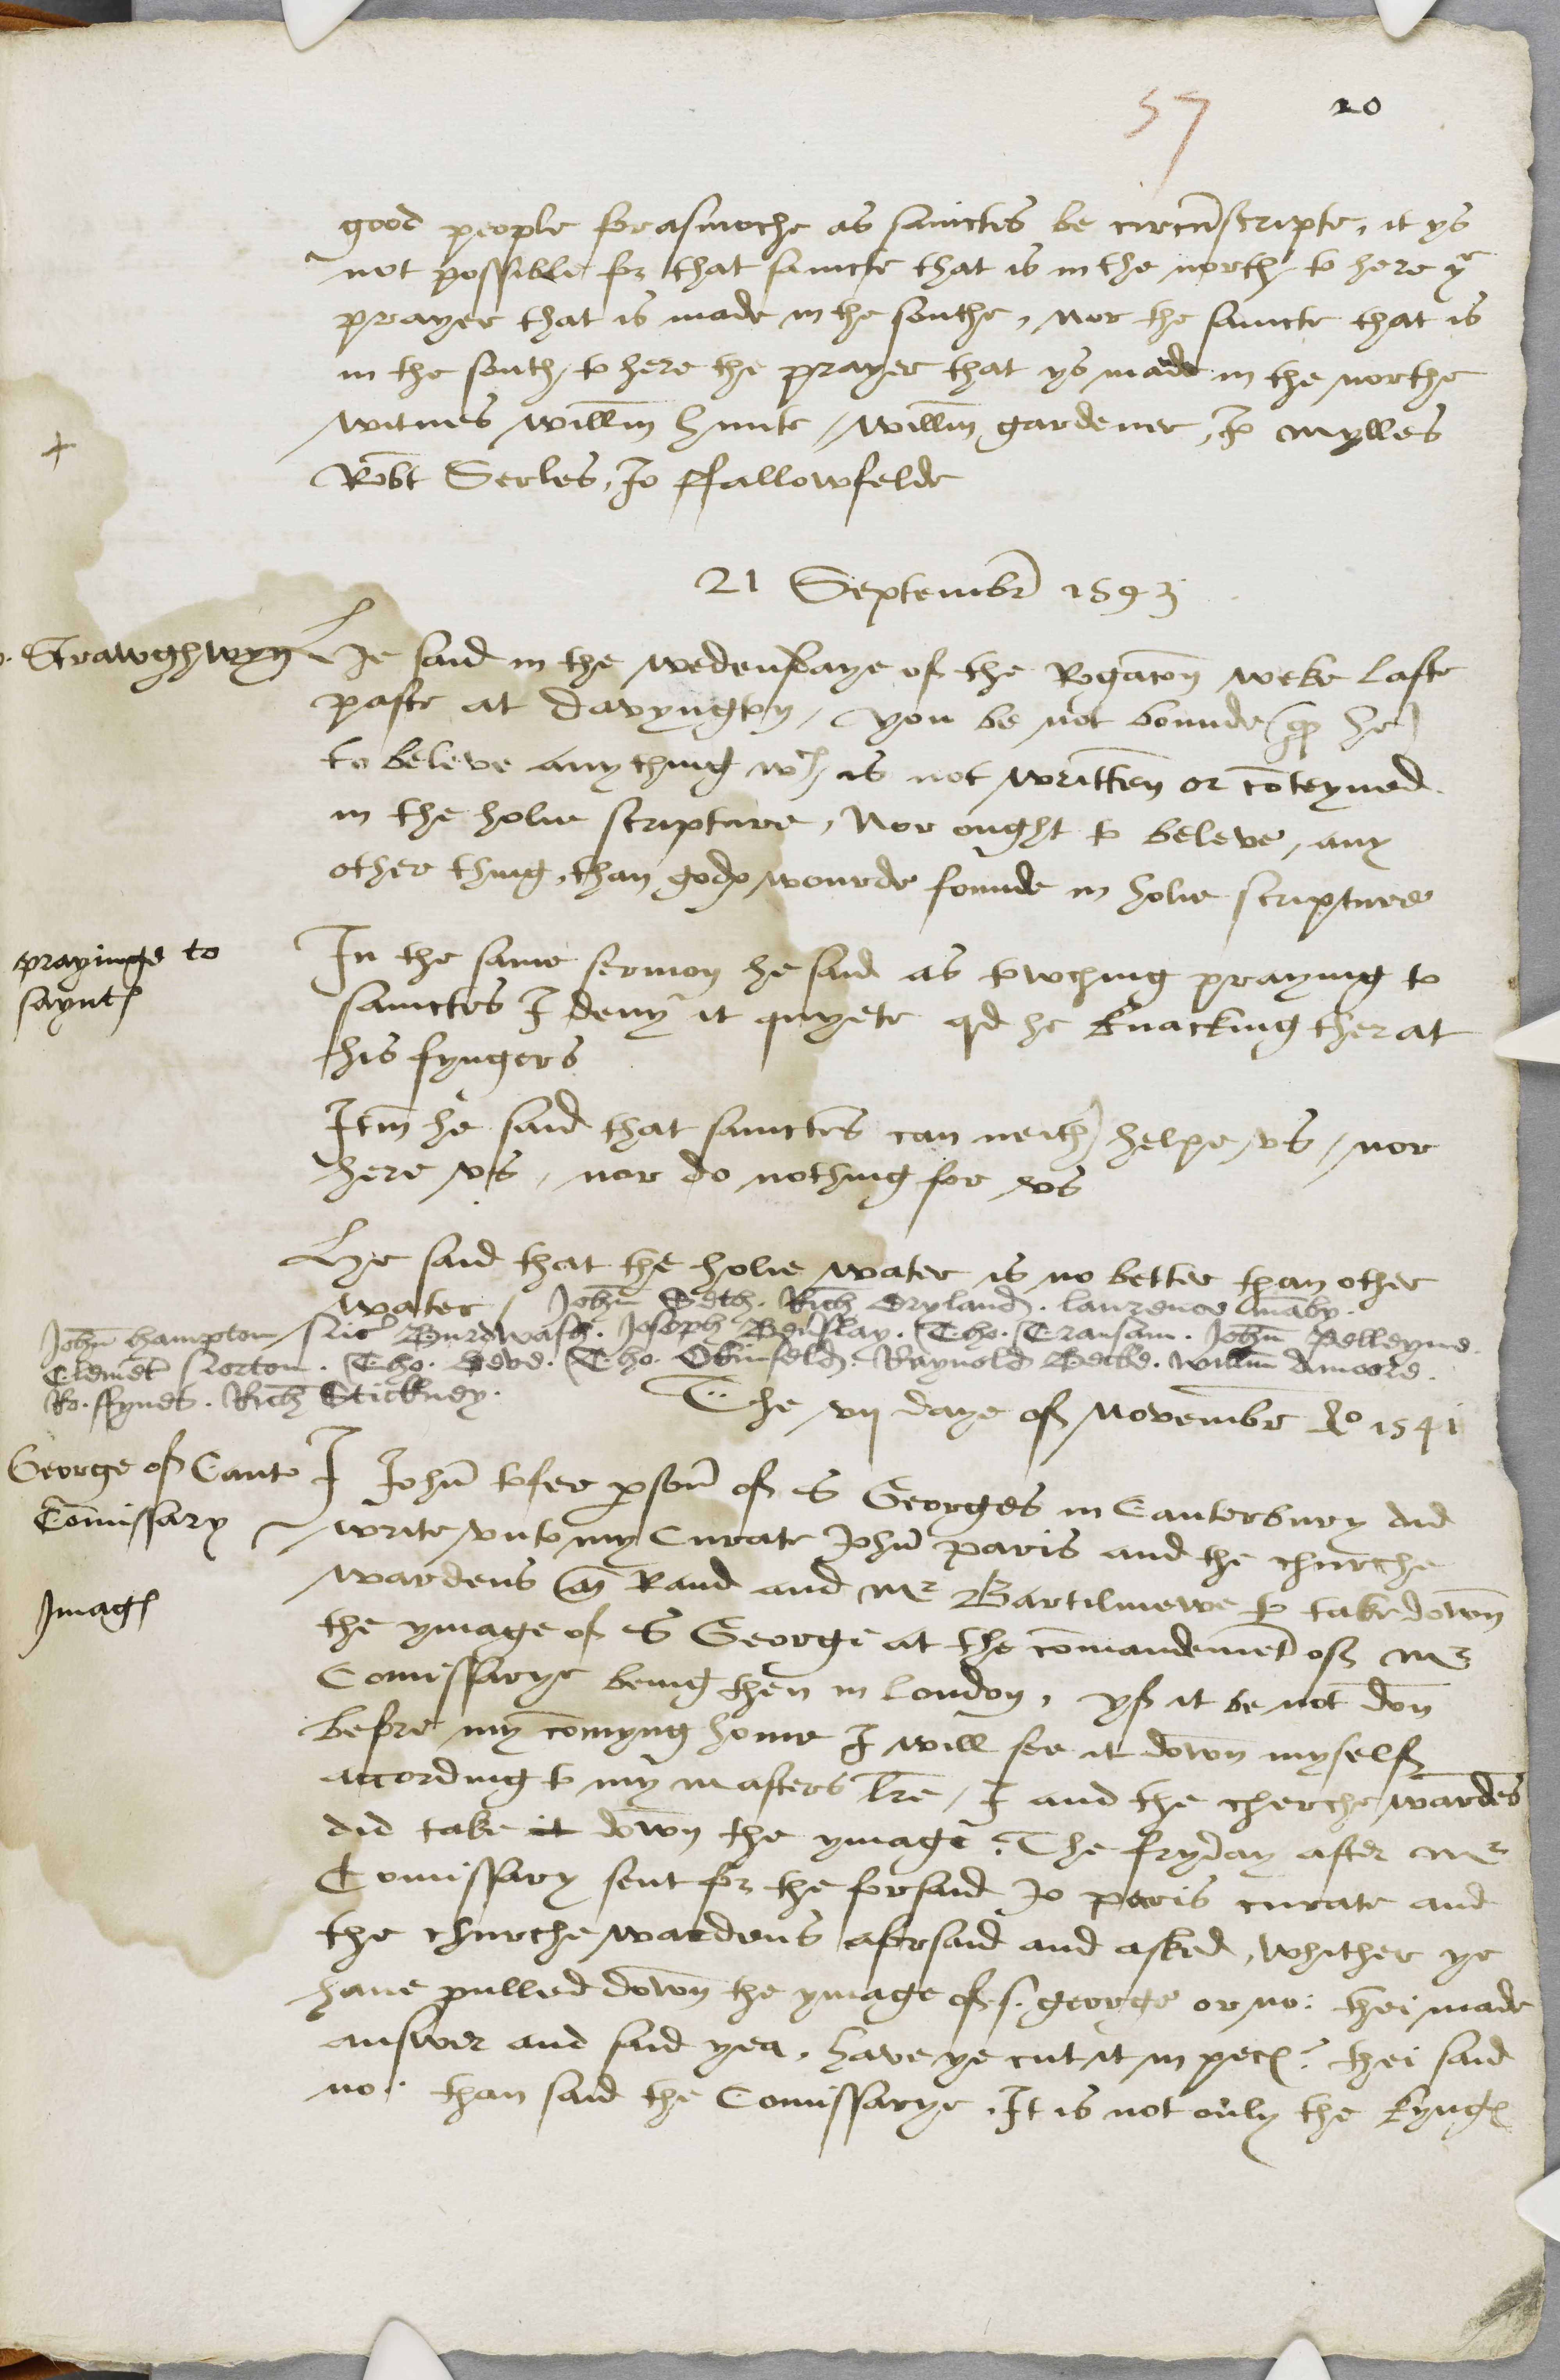 57 20
good people forasmoche as sainctes be circūscripte, it ys
not possible for that saincte that is in the north, to here yͤ
prayer that is made in the southe, Nor the saincte that is
in the south, to here the prayer that ys made in the northe
witnes willm̄ hunte / willm̄ gardener, Jo mylles
+
Robt Serles, Jo ffallowfelde
21 Septembr 1543
Strawghwyn He said in the wedensdaye of the Rogacōn weke laste
paste at davyngton, you be not bounde (qd he)
to beleve any thing wch is not written or cōteyned
in the holie scripture, Nor ought to beleve, any
other thing, than gods wourde founde in holie scripture
prayinge to
saynts
In the same sermon he said as towching praying to
sainctes I deny it quyete qd he knacking therat
his fyngers
Itm̄ he said that sainctes can neith helpe vs, nor
here vs, nor do nothing for vs
Hye said that the holie water is no better than other
water / John Seth. Rich dryland. laurence māby.
John hampton Nic Burdwash. Joseph Benslay. Tho. Transam. John Pelleyne.
Clemēt Norton. Tho. Deve. Tho. Okinfeld. Raynold Becke. willm̄ Amoore.
Ro. ffynes. Rich Stickney.
The vij daye of Novembre Ao 1541
George of Cant
Comissary
I John tofer pson of S Georges in Canterbury did
write vnto my Curate John paris and the churche
wardens Rand and Mr Bartilmewe to take down
Imags
the ymage of S George at the cōmandemēt of Mr
Comissarye being then in london, yf it be not don
before my cōmyng home I will see it down myself
according to my masters lre, I and the cherche wardēs
did take it down the ymage. The fryday after Mr
Comissary sent for the forsaid Jo paris curate and
the churche wardens aforsaid and asked, whither ye
have pulled down the ymage of s. george or no: thei made
answer and said yea, have ye cut it in pecs? thei said
no. than said the Comissarye, It is not only the kyngs